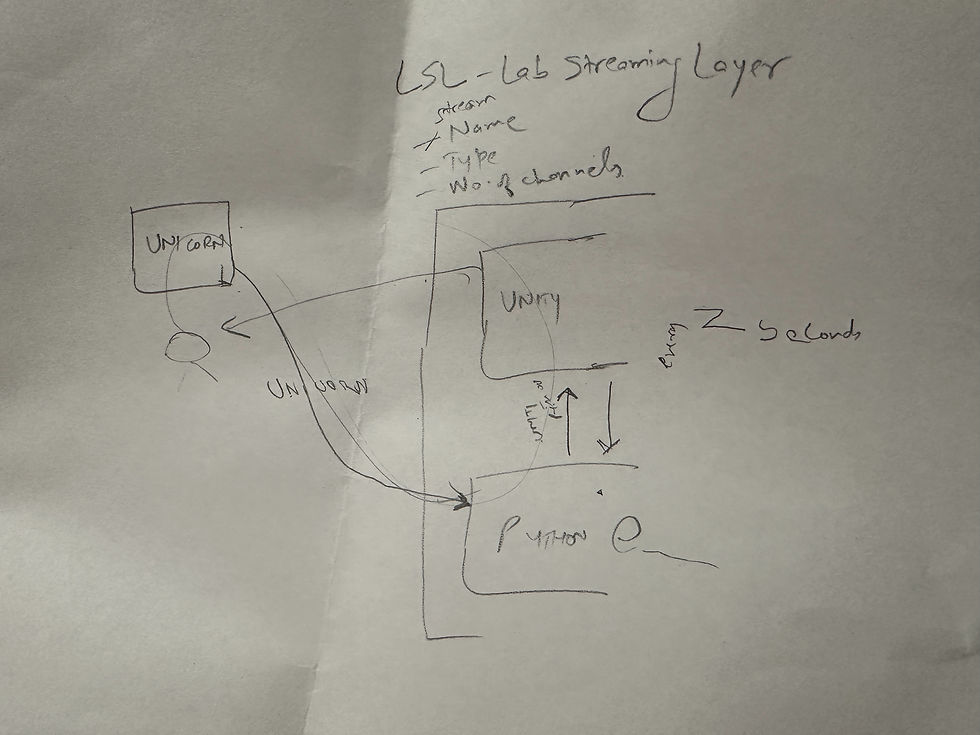 LSL - Lab Streaming Layer
stream
Name
- Type
- No. of channels
UNICORN
UNITY
every 2 seconds
UNICORN
PYTHON